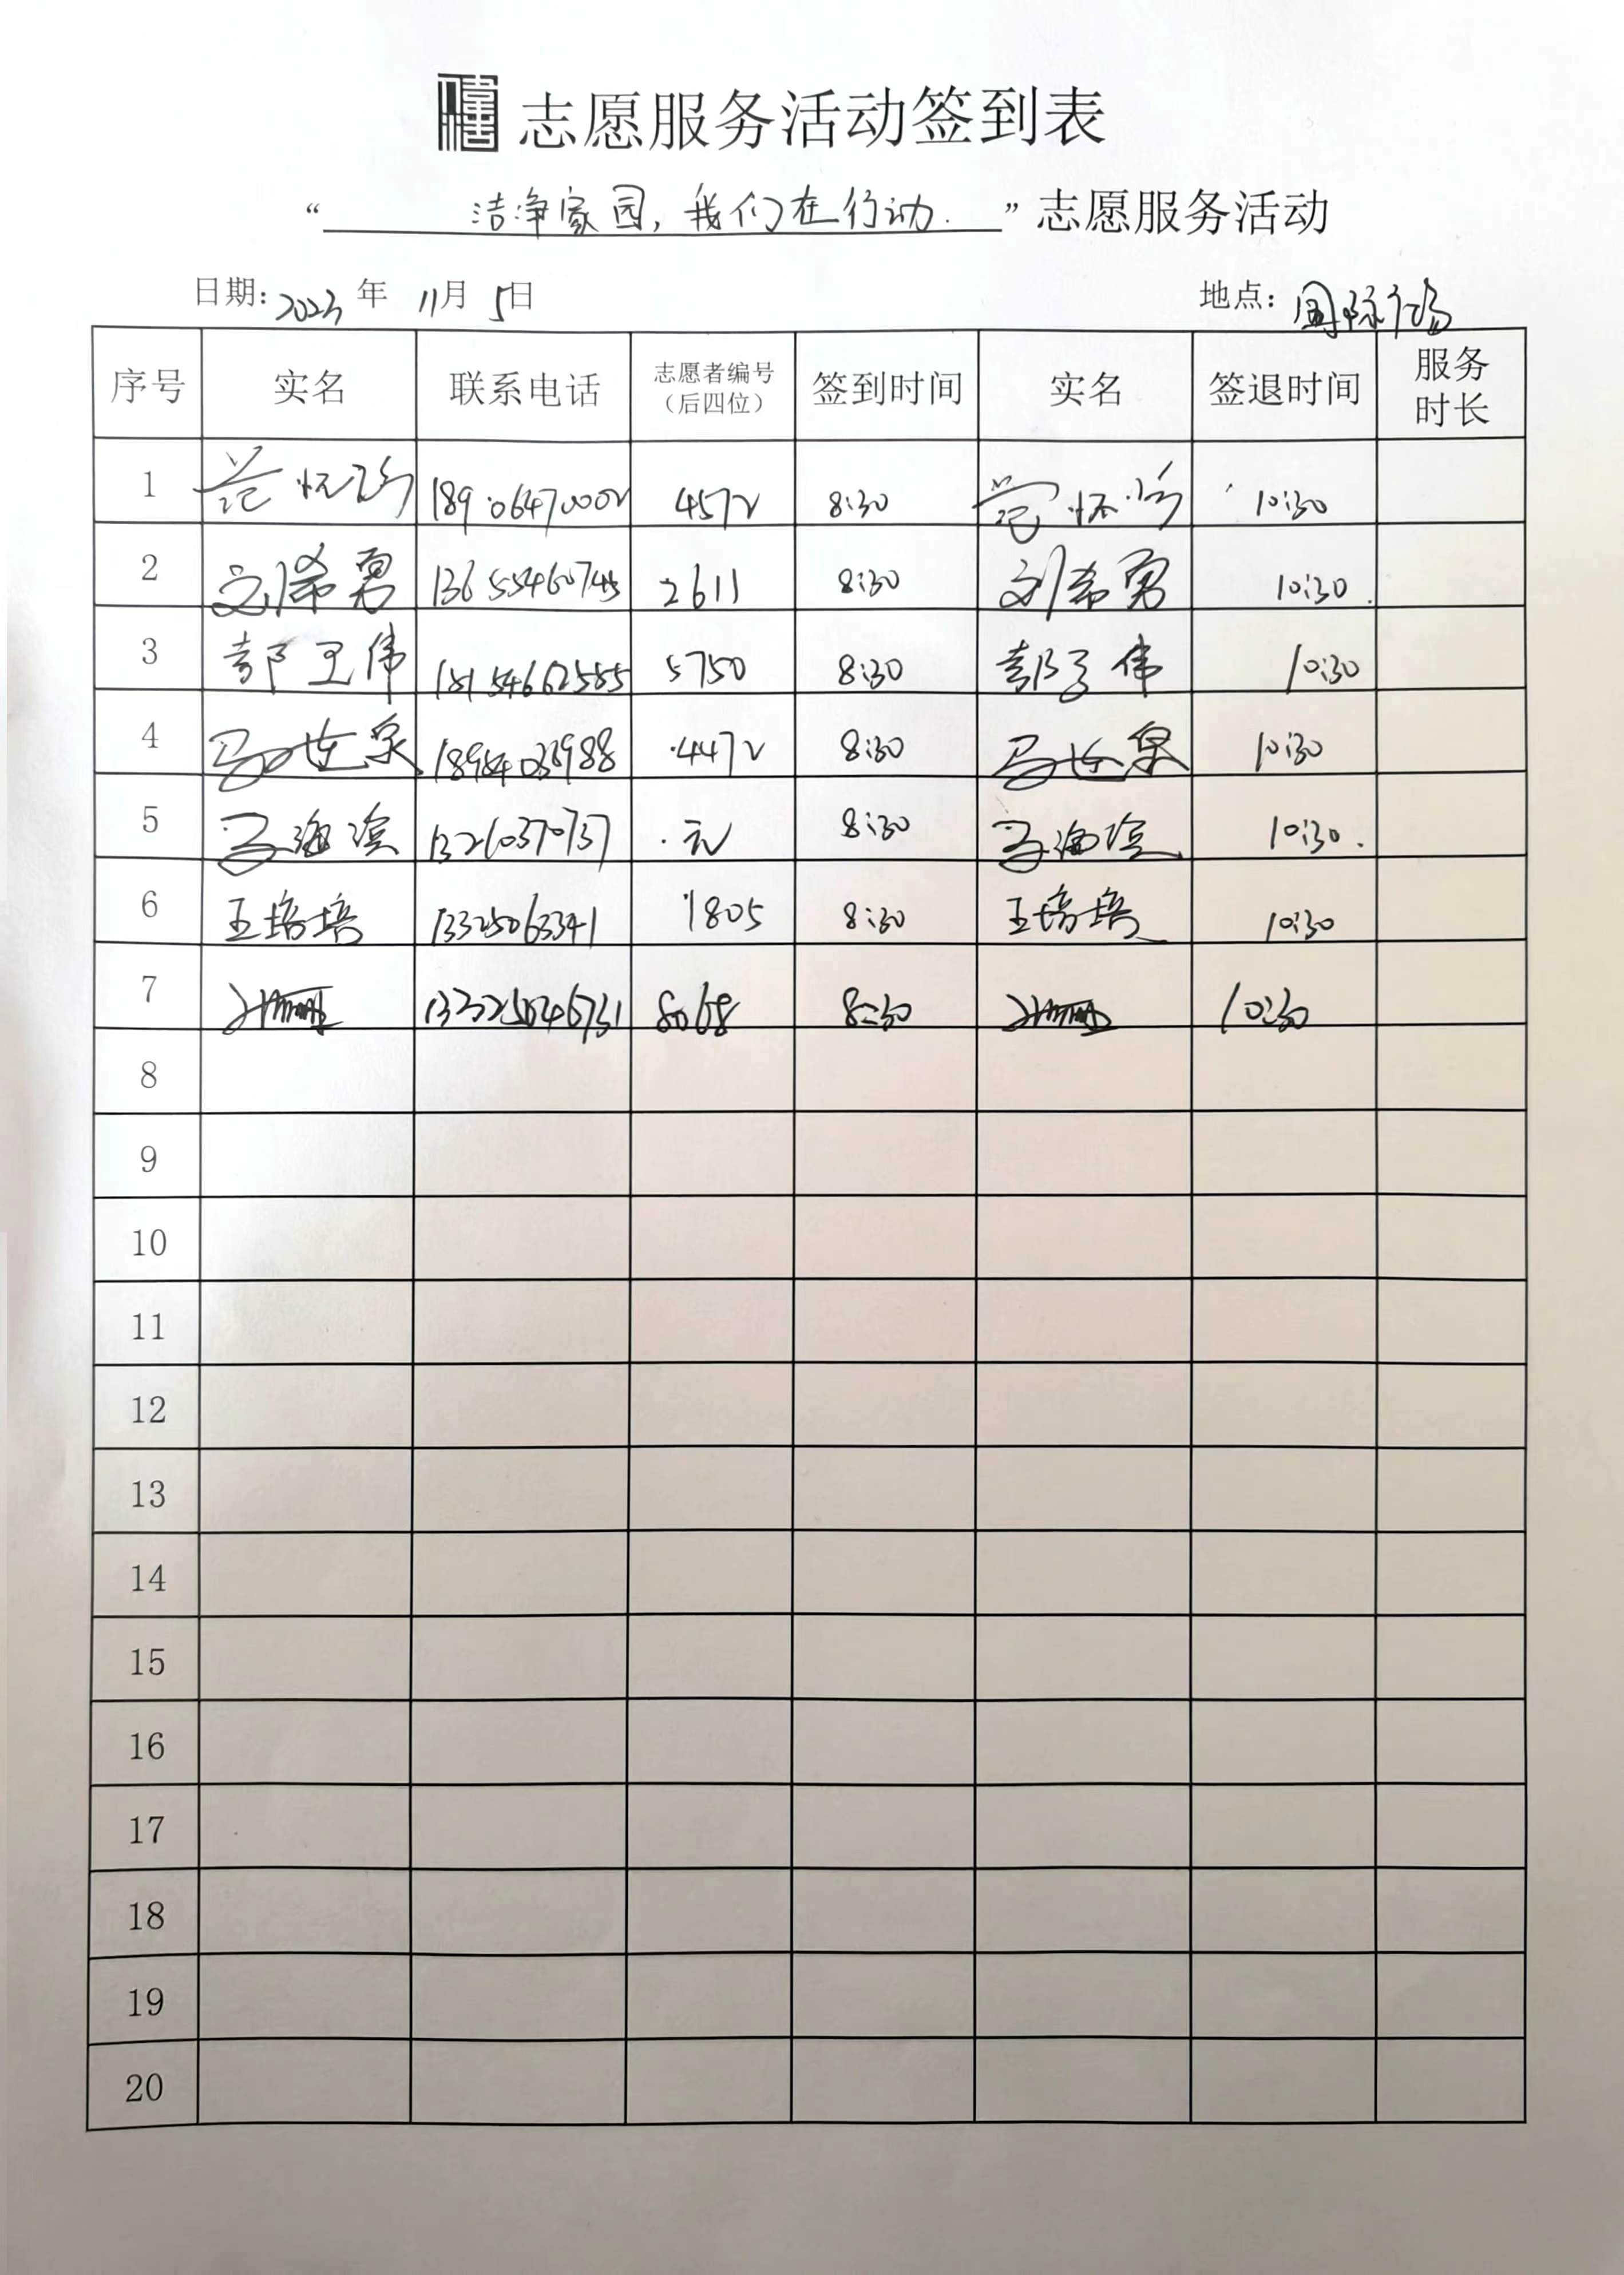 志愿服务活动签到表
“洁净家园，我们在行动.”志愿服务活动
日期：2023年 11月 5日 地点：国际广场
序号 实名 联系电话 志愿者编号（后四位） 签到时间 实名 签退时间 服务时长
1 范怀珍 18906470002 4572 8:30 范怀珍 10:30
2 刘希勇 2611 8:30 刘希勇 10:30
3 5750 8:30 10:30
4 马连泉 4472 8:30 马连泉 10:30
5 马海滨 无 8:30 马海滨 10:30
6 王培培 13325063341 1805 8:30 王培培 10:30
7 8068 8:30 10:30
8
9
10
11
12
13
14
15
16
17
18
19
20